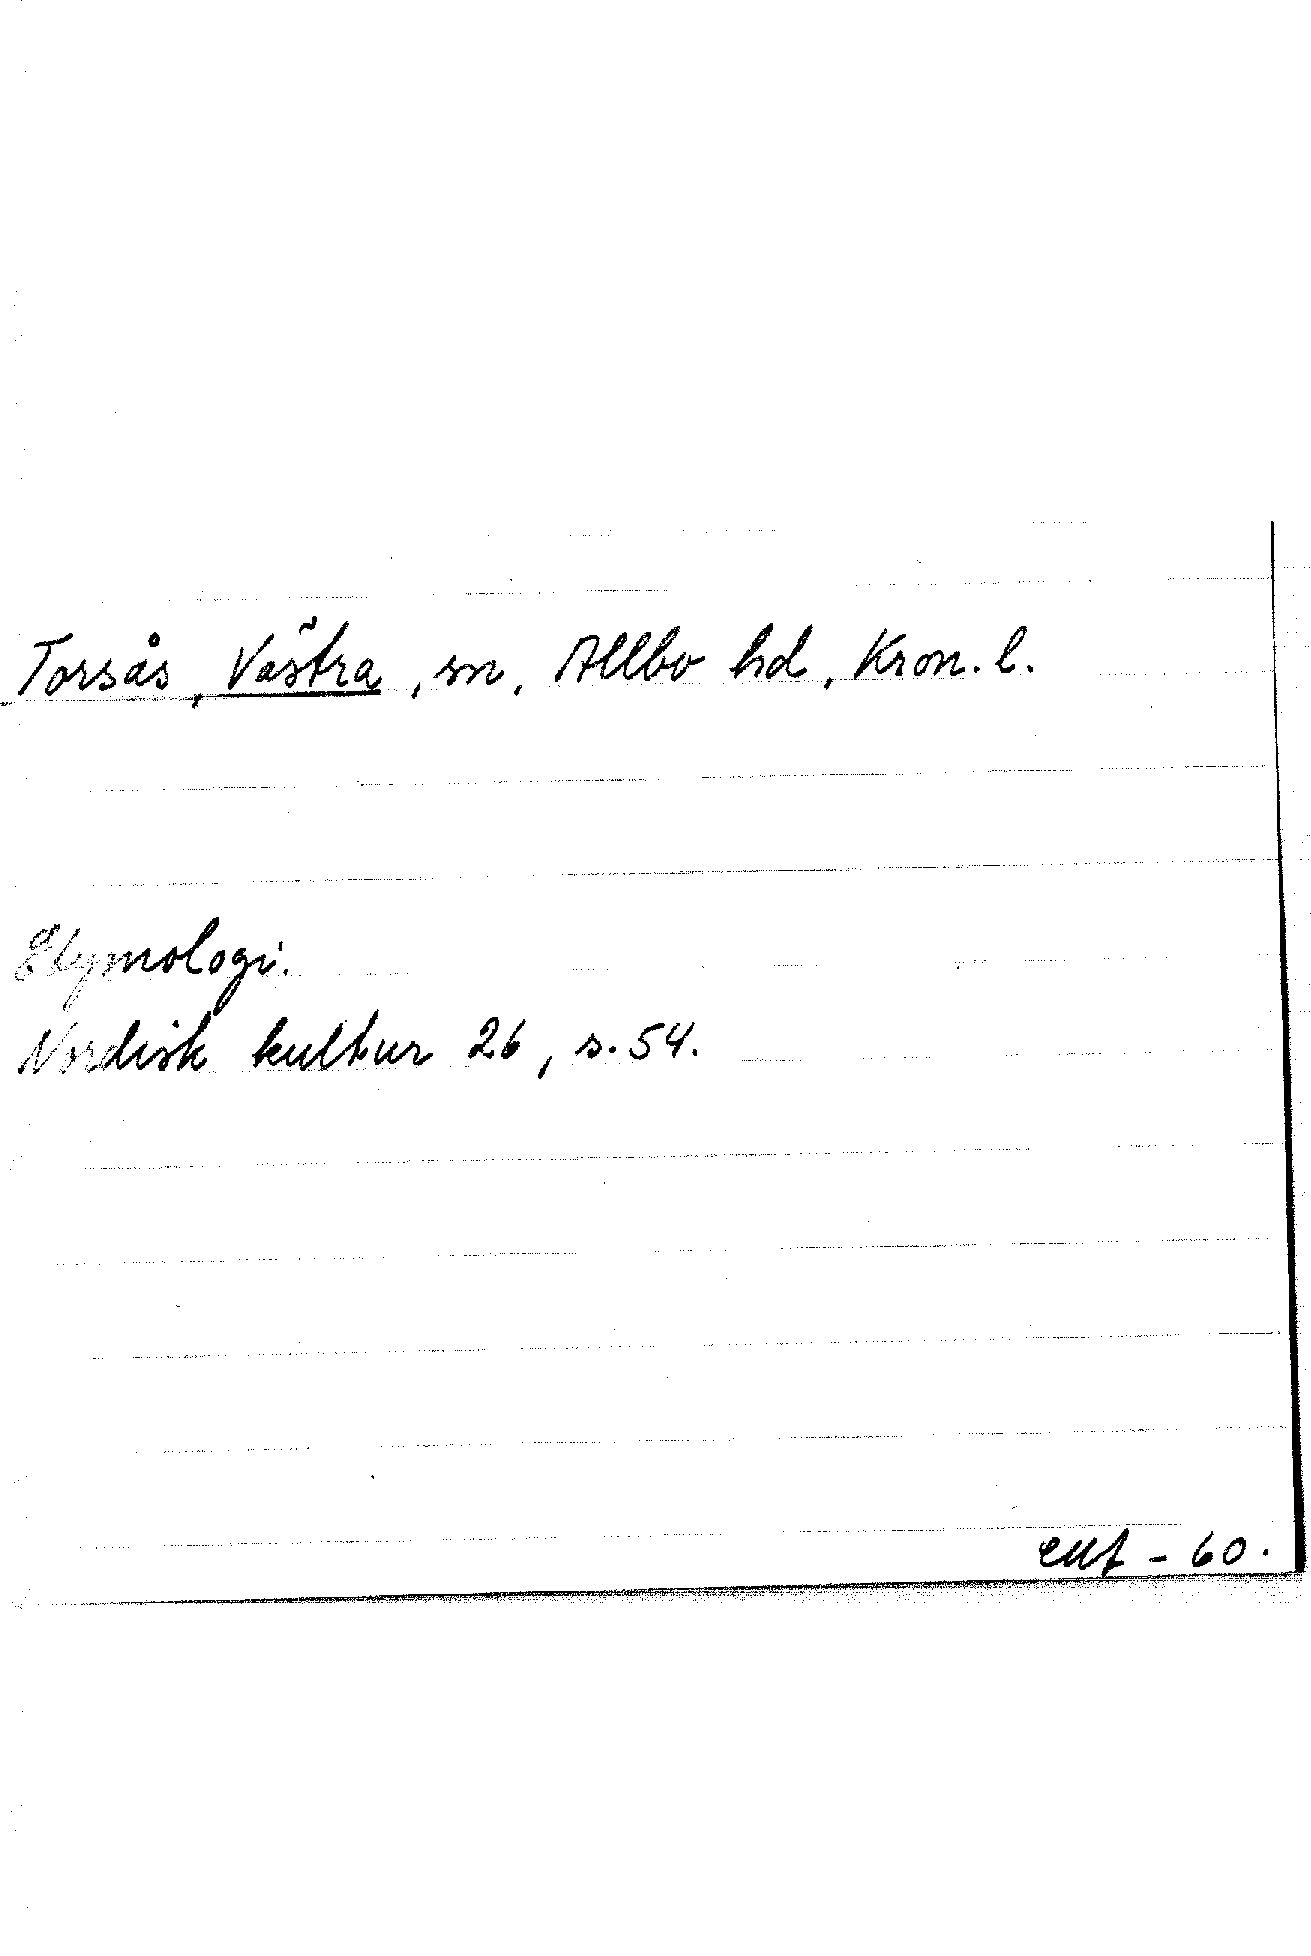 Torsås, Västra, sn, Allbo hd, Kron. l.
Etymologi.
Nordisk kultur 26, s. 54.
- 60.